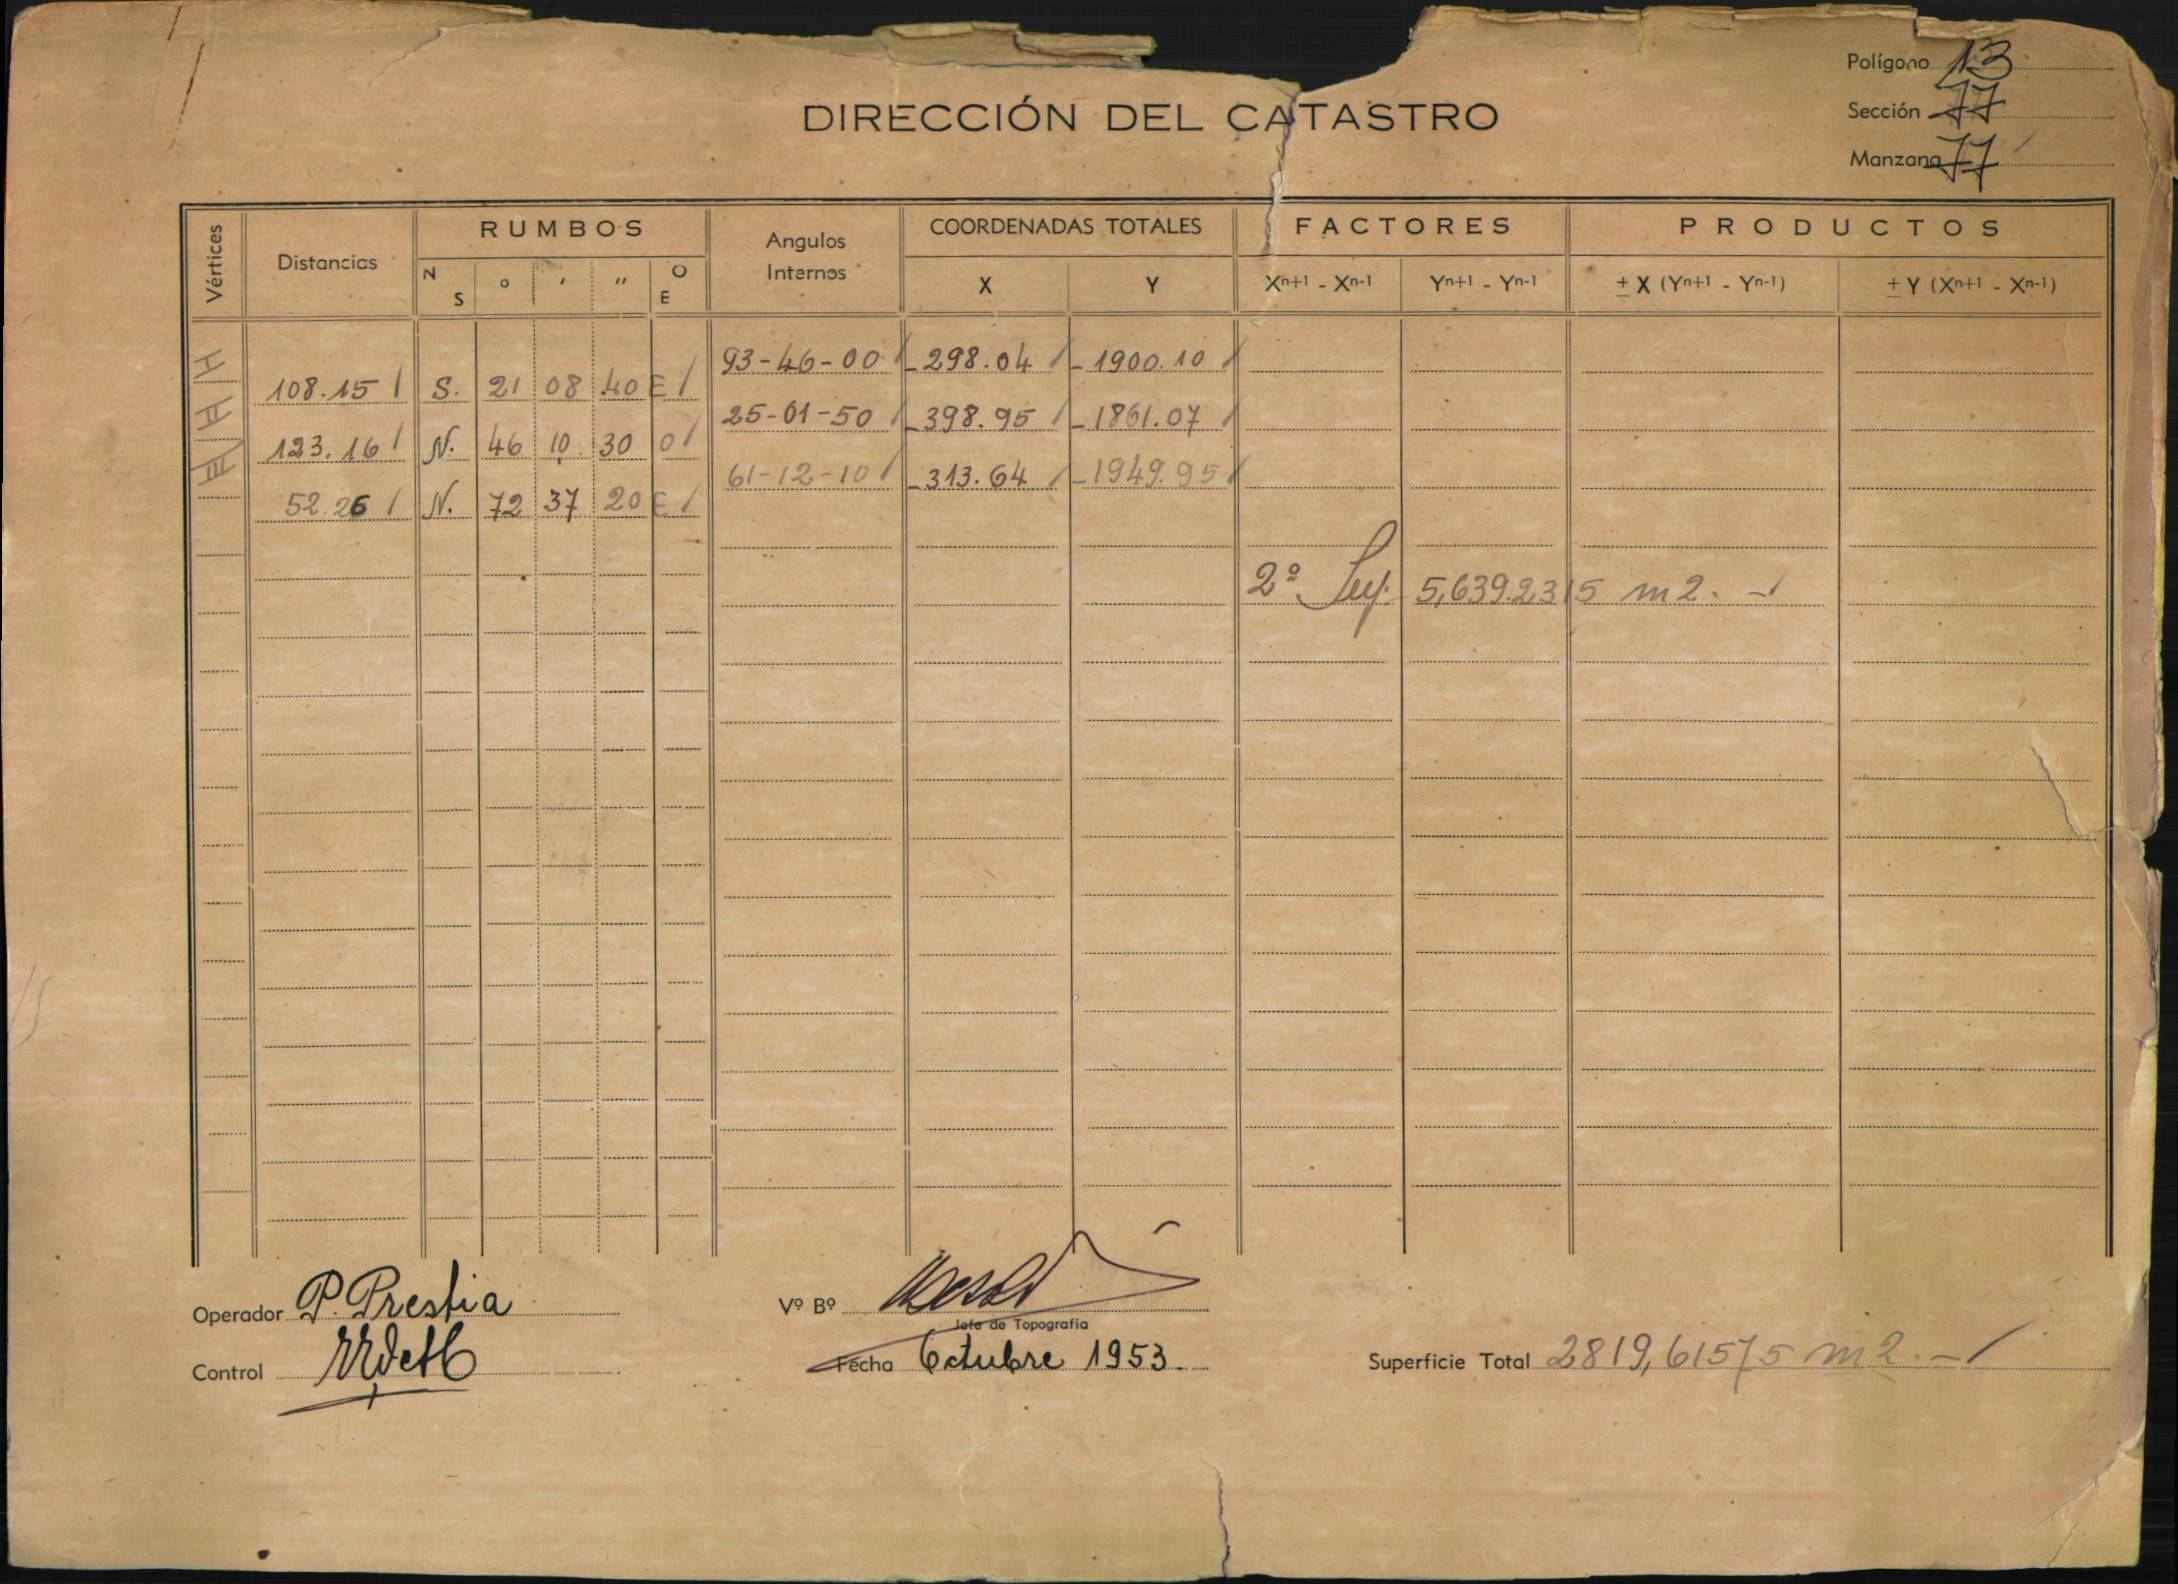 Polígono 13
DIRECCIÓN DEL CATASTRO
Sección 77
Manzana 77
Vértices Distancias RUMBOS Angulos Internos COORDENADAS TOTALES FACTORES PRODUCTOS
N S ° ' " O E X Y Xn+1 - Xn-1 Yn+1 - Yn-1 ± X (Yn+1 - Yn-1) ± Y (Xn+1 - Xn-1)
I 93-46-00 -298.04 -1900.10
108.15 S. 21 08 40 E
II 25-01-50 -398.95 -1861.07
123.16 N. 46 10 30 O
III 61-12-10 -313.64 -1949.95
52.26 N. 72 37 20 E
2º Sup. 5,639.2315 m2.
Operador P. Prestia
Vº Bº
Jefe de Topografía
Control
Fecha Octubre 1953.
Superficie Total 2819,61575 m2.